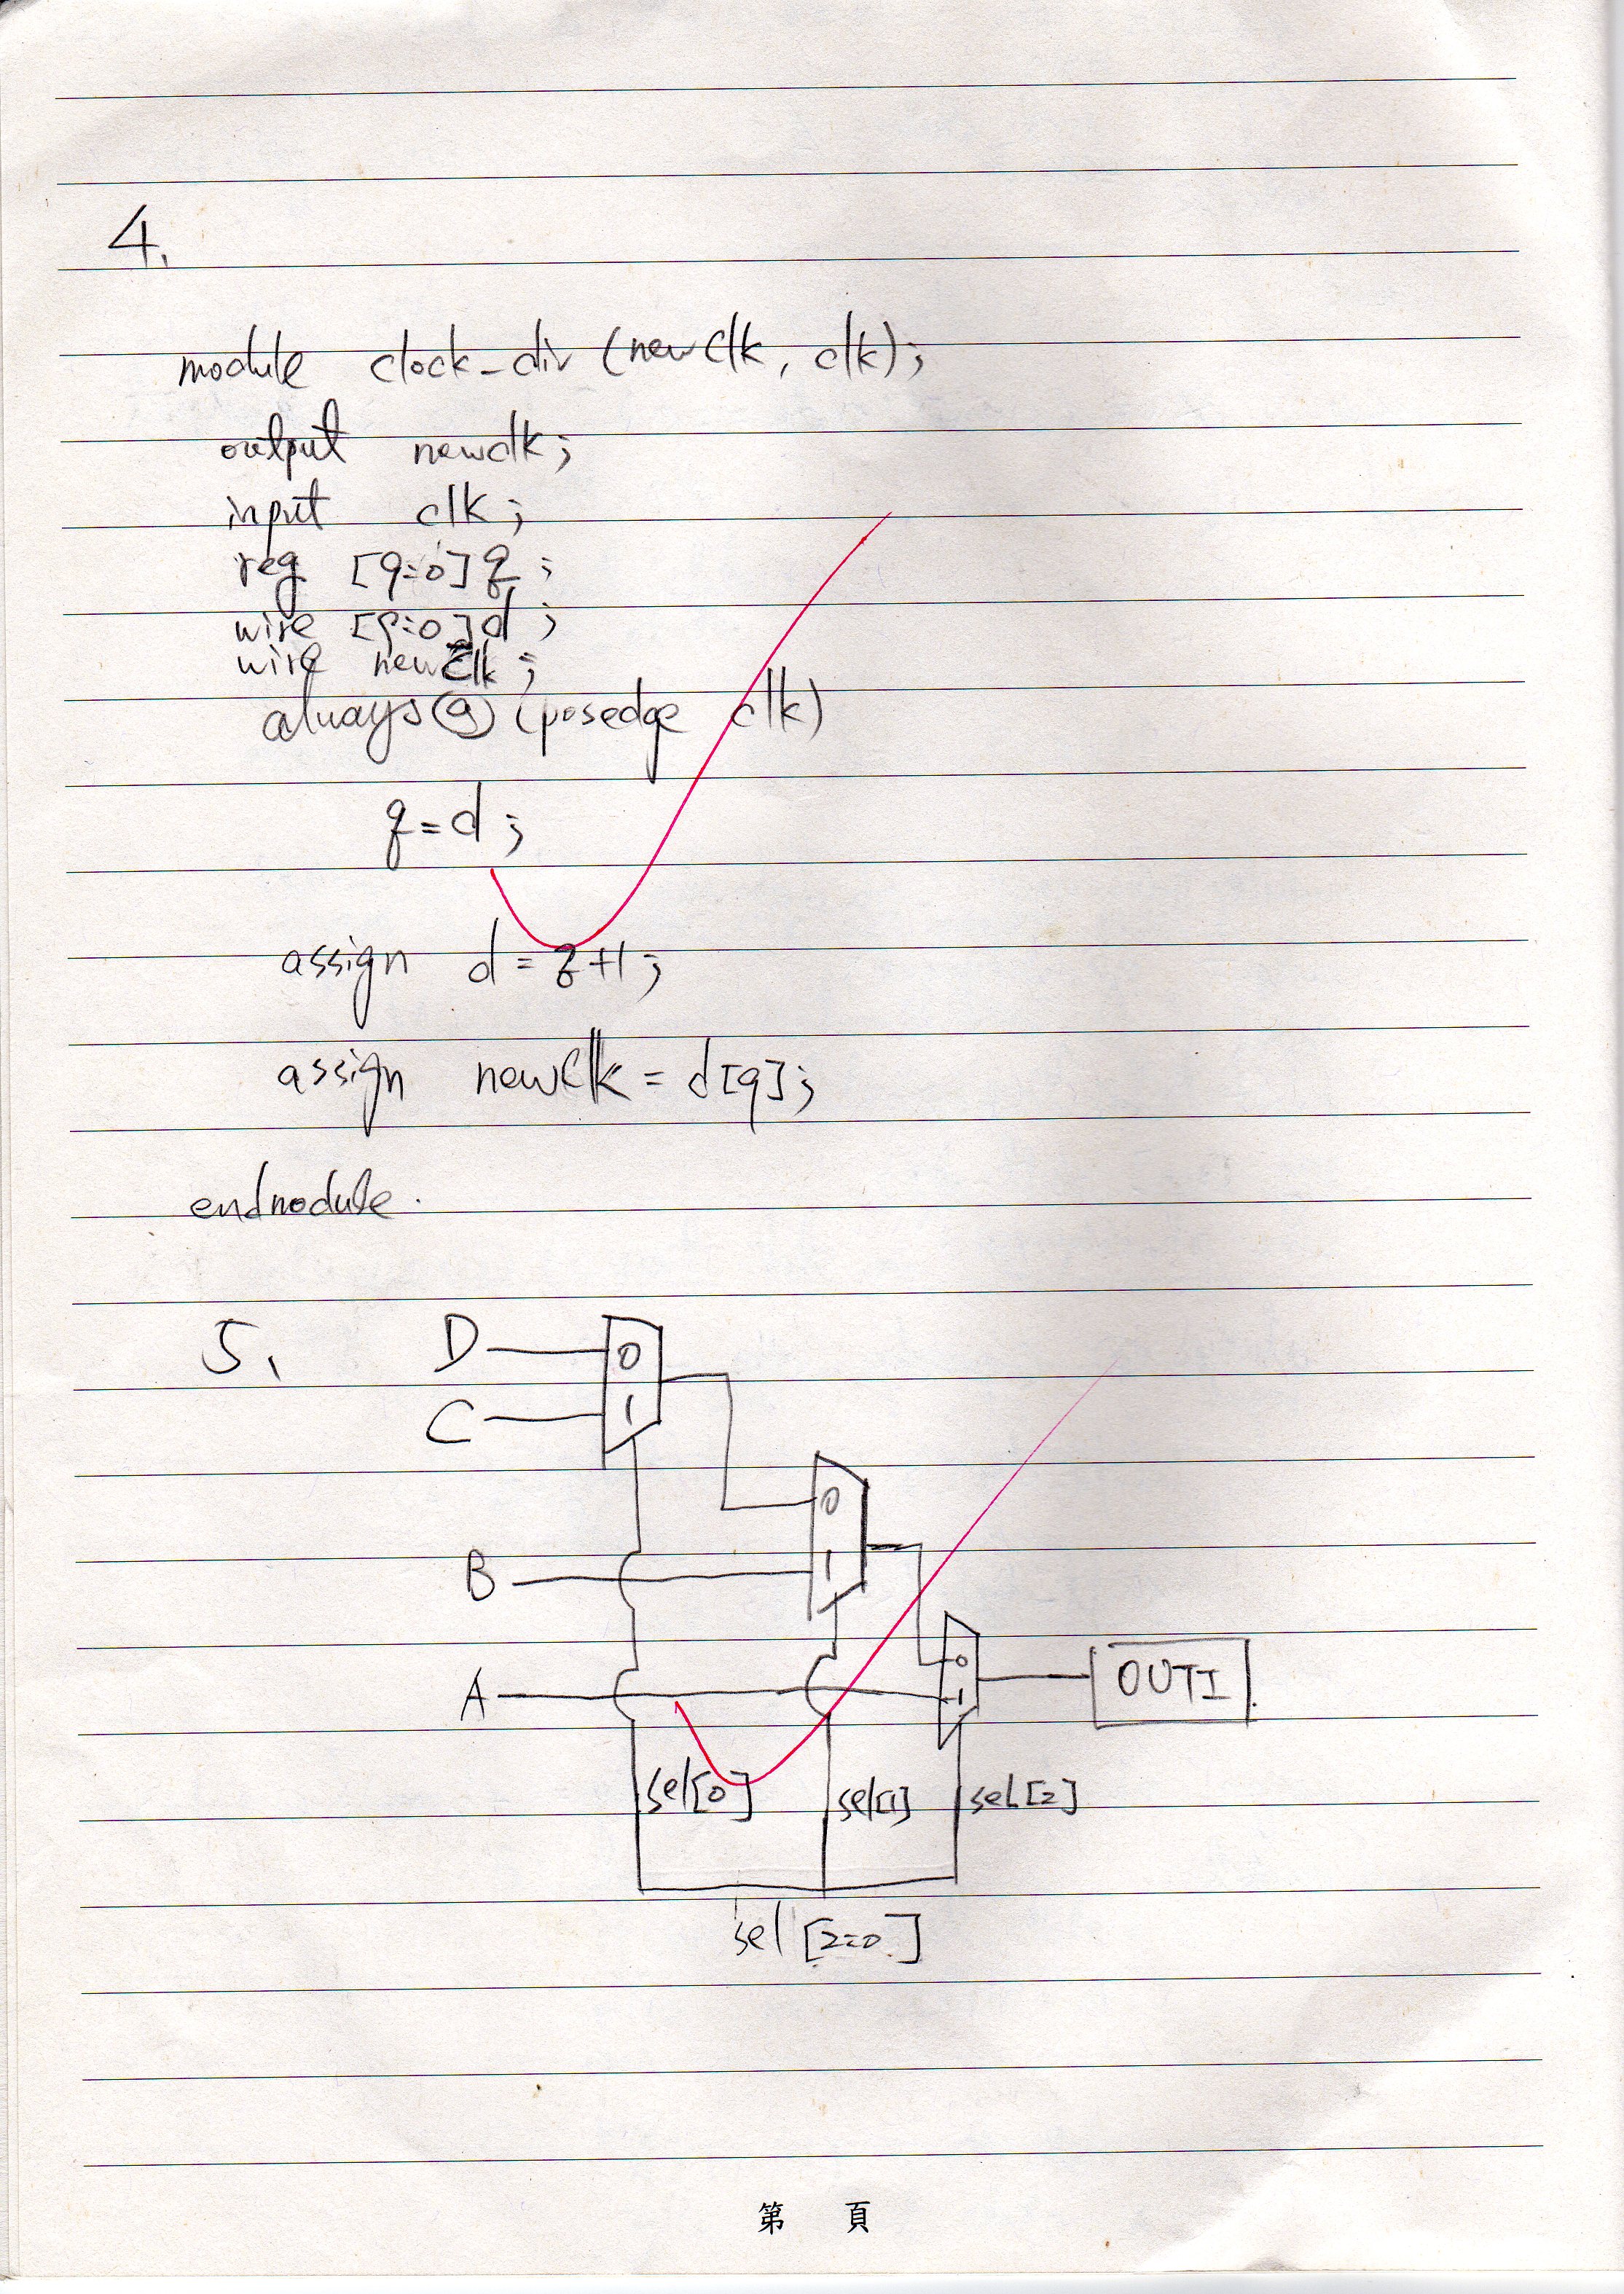 4.
module clock_div (newclk, clk);
output newclk;
input clk;
reg [9:0] q;
wire [9:0] d;
wire newclk;
always@(posedge clk)
q=d;
assign d=q+1;
assign newclk = d[9];
endmodule.
5.
D 0
C 1
0
B 1
0
A 1 OUT1
sel[0] sel[1] sel[2]
sel [2:0]
第 頁